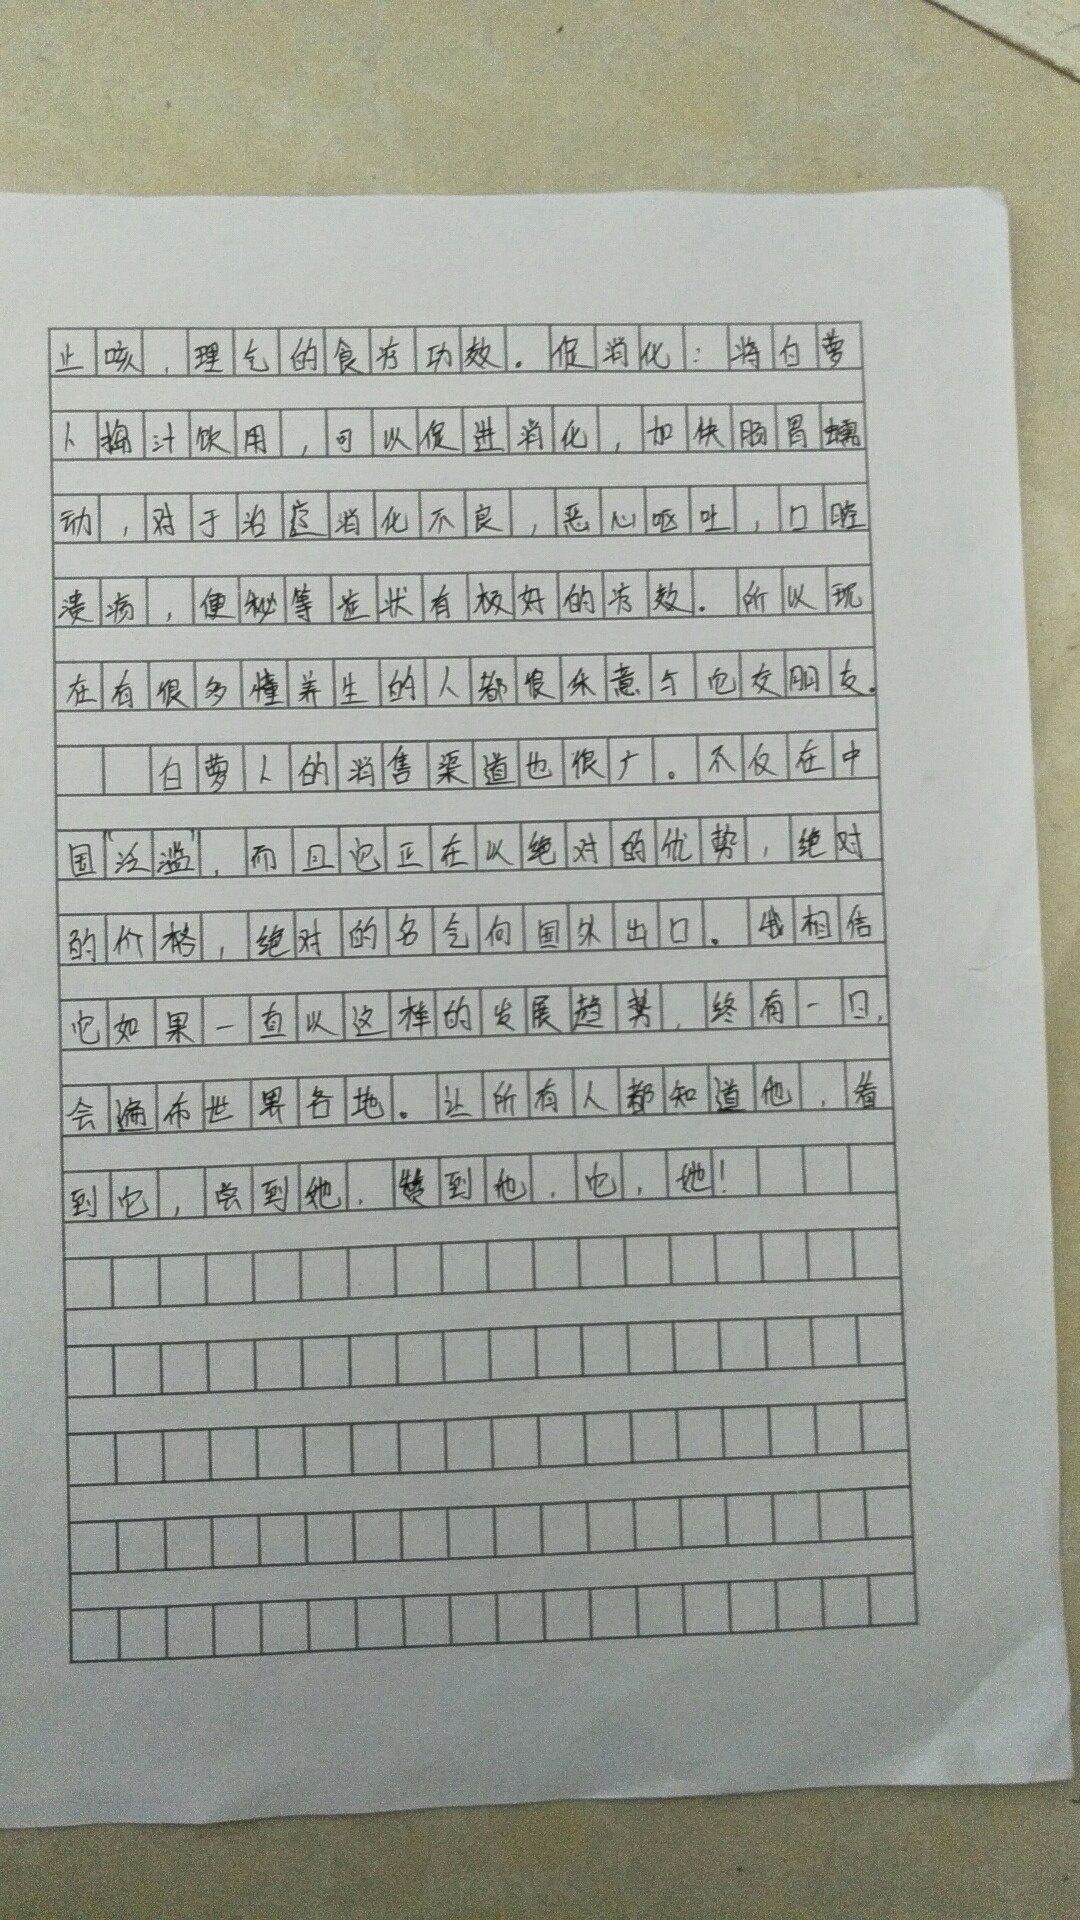 止咳，理气的食疗功效。促消化：将白萝
卜榨汁饮用，可以促进消化，加快肠胃蠕
动，对于治疗消化不良，恶心呕吐，口腔
溃疡，便秘等症状有极好的疗效。所以现
在有很多懂养生的人都很乐意与它交朋友。
白萝卜的消售渠道也很广。不仅在中
国“泛滥”，而且它正在以绝对的优势，绝对
的价格，绝对的名气向国外出口。我相信
它如果一直以这样的发展趋势，终有一日，
会遍布世界各地。让所有人都知道他，看
到它，尝到她，赞到他，它，她！